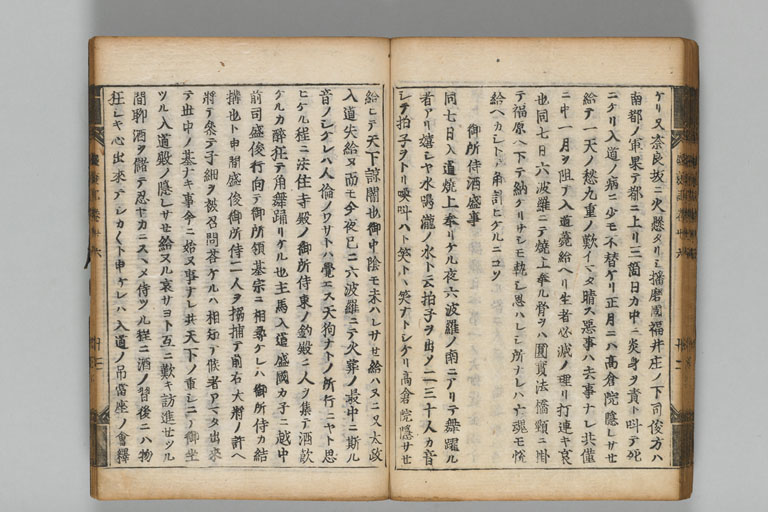 ケリ又奈良坂ニ火懸タリシ播磨國福井庄ノ下司俊方ハ
南都ノ軍果テ都ニ上リ三箇日カ中ニ炎身ヲ責ト叫テ死
ニケリ入道ノ病ニ少モ不替ケリ正月ニハ高倉院隱レサセ
給テ一天ノ愁九重ノ歎イマタ晴ス悪事ハ夫事ナレ共僅
ニ中一月ヲ阻テ入道薨給ヘリ生者必滅ノ理リ打連キ哀
也同七日六波羅ニテ燒上奉ル骨ヲハ圓實法橋頸ニ掛
テ福原ヘ下テ納ケリサシモ執シ思ハレシ所ナレハ亡魂モ悦
給ヘカシトノ角計ヒケルニコソ
御所侍酒盛事
同七日入道燒上奉リケル夜六波羅ノ南ニアリテ舞躍ル
者アリ嬉シヤ水鳴瀧ノ水ト云拍子ヲ出ツ二三十人カ音
シテ拍子ヲトリ喚叫ハト笑トハ笑ナトシケリ高倉院隱サセ
給ヒテ天下諒闇也御中陰モ未ハレサセ給ハヌニ又太政
入道失給ヌ而モ今夜已ニ六波羅ニテ火葬ノ最中ニ斯ル
音ノシケレハ人倫ノワサトハ覺エス天狗ナトノ所行ニヤト思
ヒケル程ニ法住寺殿ノ御所侍東ノ釣殿ニ人ヲ集テ酒飲
ケルカ醉狂テ角舞踊リケル也主馬入道盛國カ子ニ越中
前司盛俊行向テ御所領基宗ニ相尋ケレハ御所侍カ結
搆也ト申間盛俊御所侍二人ヲ搦捕テ前右大將ノ許ヘ
將テ參テ子細ヲ被召問答ケルハ相知テ候者アマタ出來
テ
ツル入道殿ノ隱レサセ給ヌル哀サヨト互ニ歎キ訪進セツル
間聊酒ヲ儲テ忍ヤカニスヽメ侍ツル程ニ酒ノ習後ニハ物
狂シキ心出來テシカ〱ト申ケレハ入道ノ吊當座ノ會釋